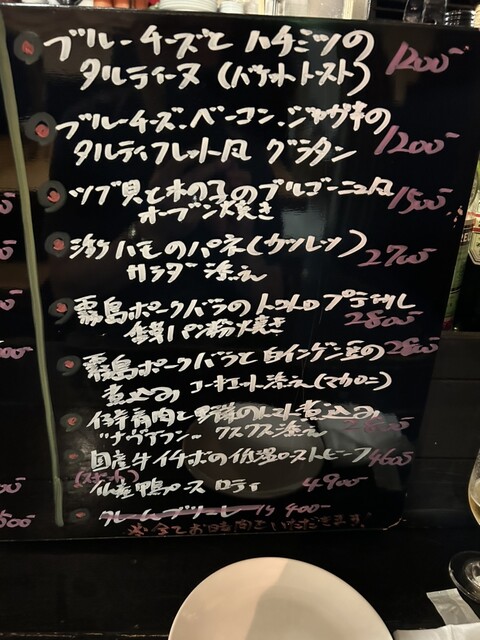 ブルーチーズと ハチミツの
タルティーヌ (バケットトースト) 1200-
ブルーチーズ、ベーコン、ジャガ芋の
タルティフレット風 グラタン 1200-
ツブ貝と木の子のブルゴーニュ風
オーブン焼き 1500-
ハモのパネ(カツレツ)
サラダ添え 2700-
霧島ポークバラのトロトロ
パン粉焼き 2800-
霧島ポークバラと白インゲン豆の 2800-
煮込み コキエット添え(マカロニ)
仔羊肩肉と野菜のトマト煮込み
"ナヴァラン" クスクス添え 2800-
国産牛イチボの低温ローストビーフ 4600
仏産鴨 ロティ 4900-
クレームブリュレ 900-
※全てお時間をいただきます